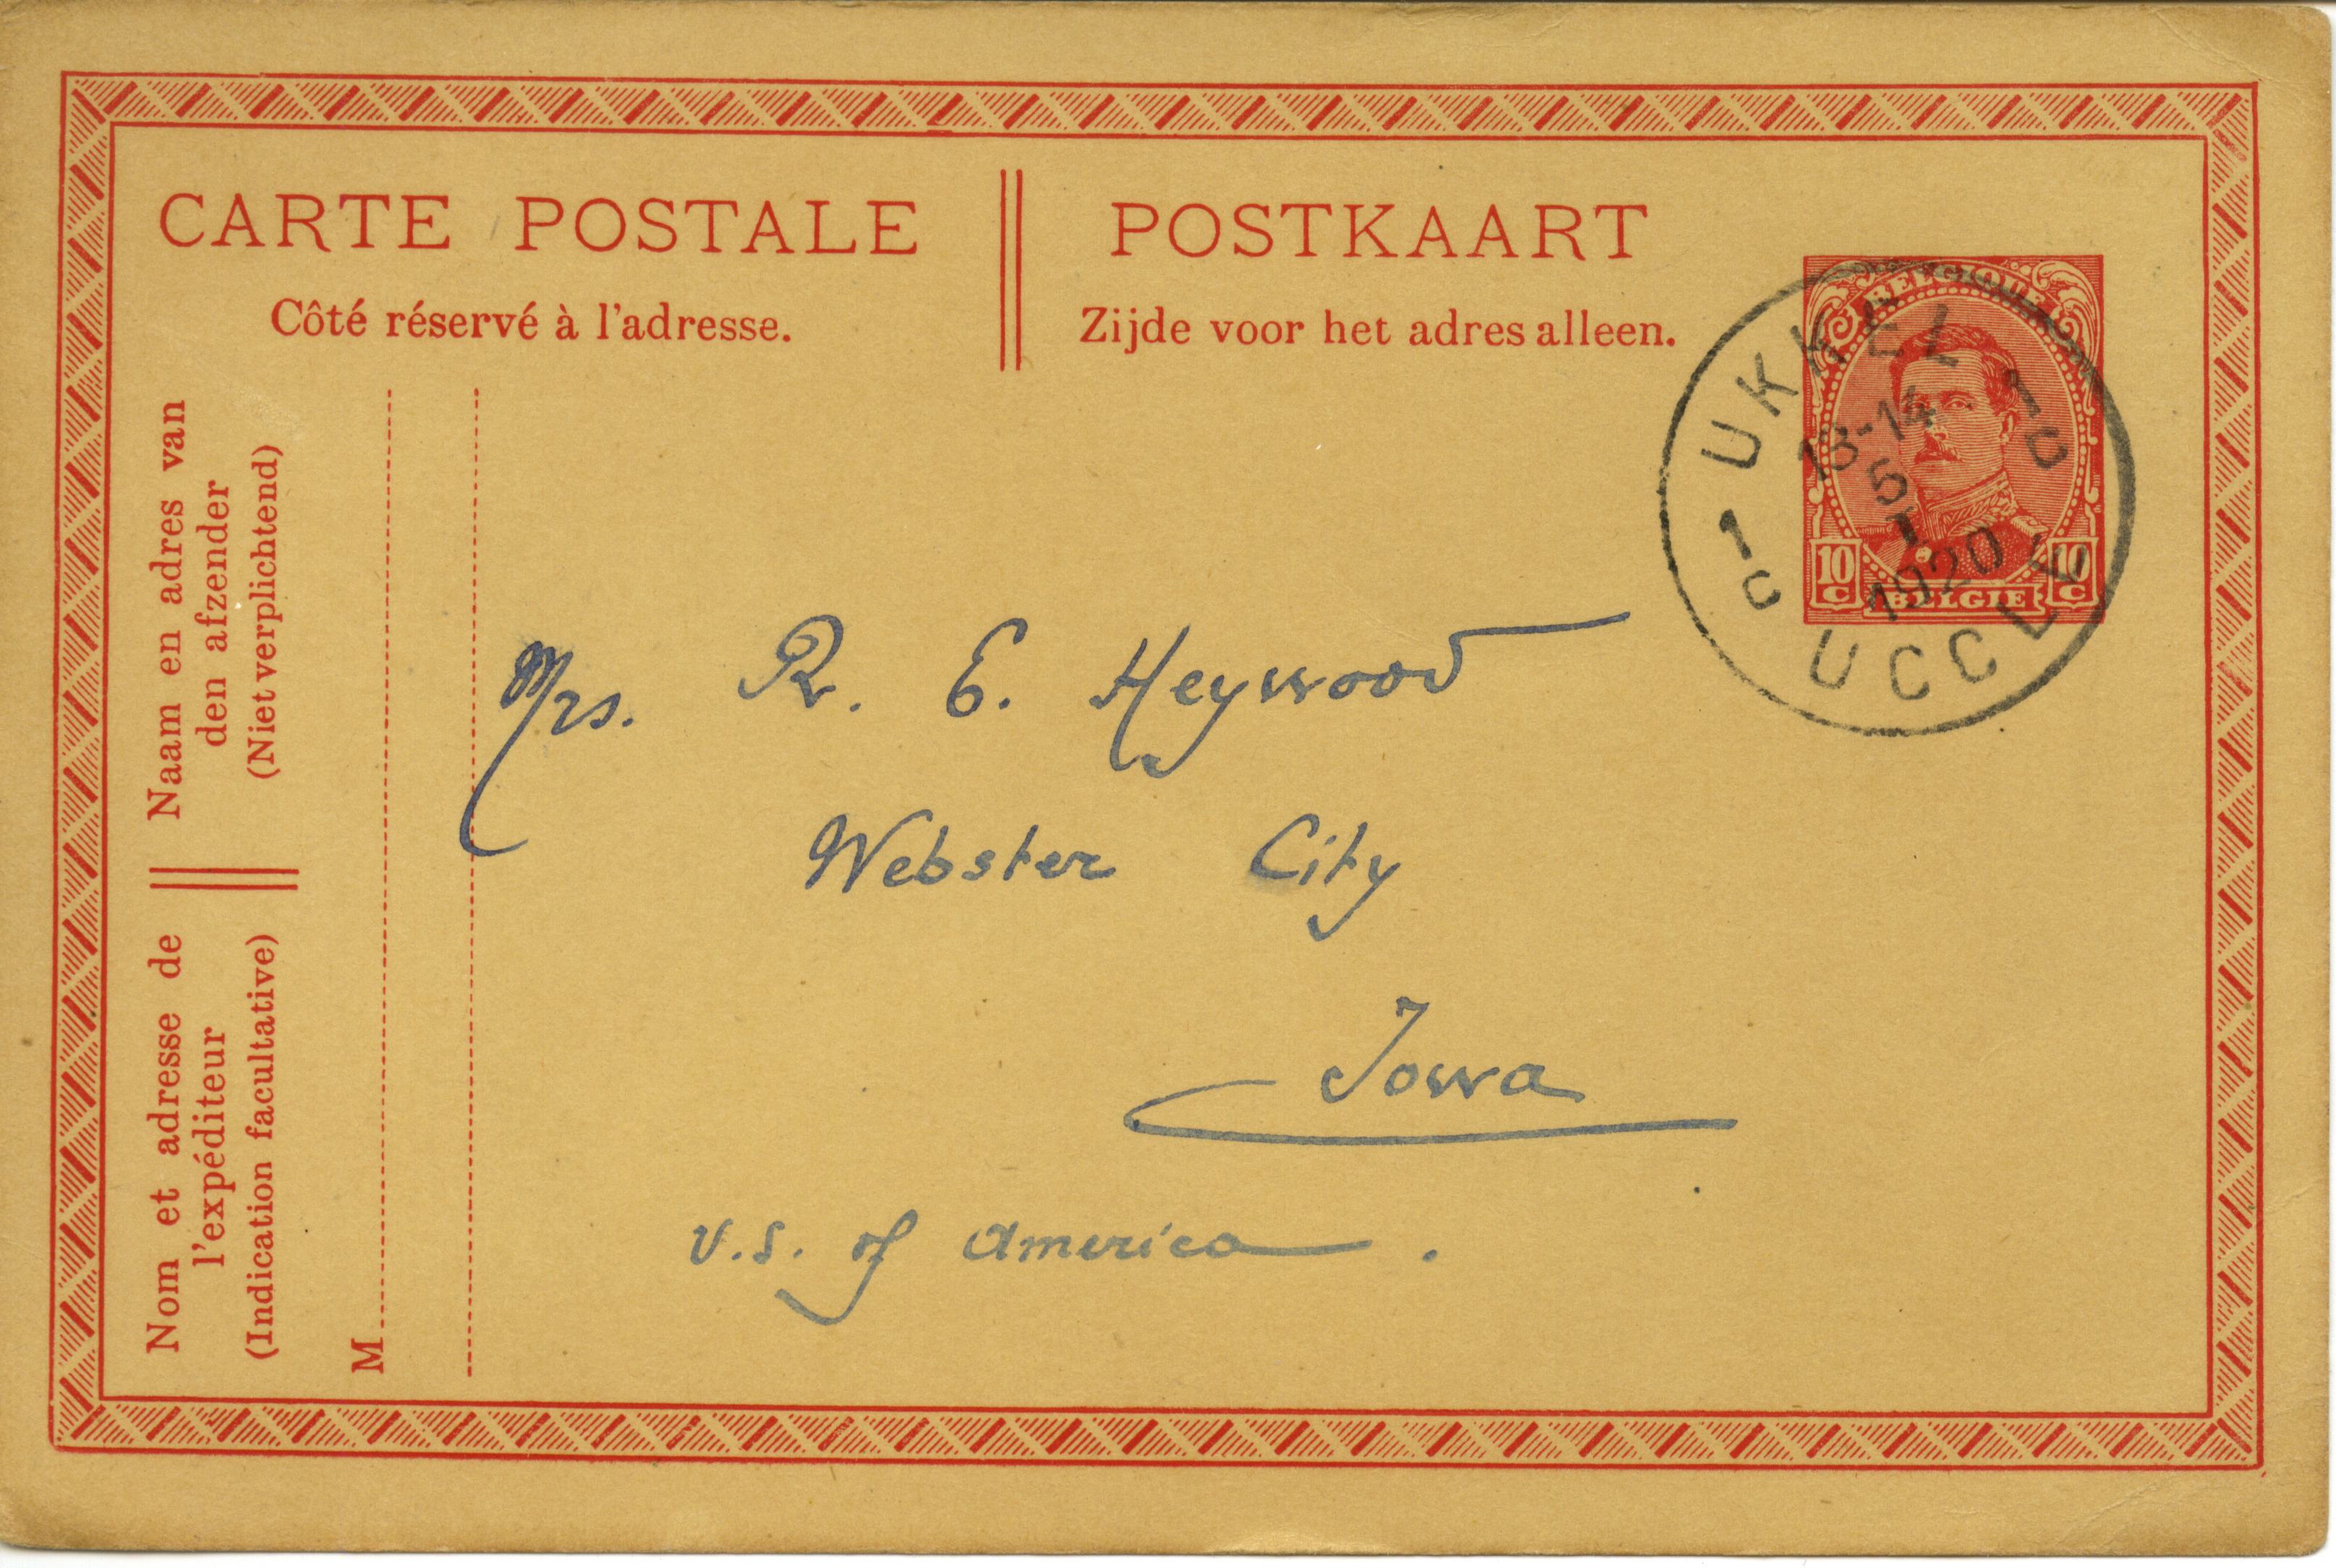 CARTE POSTALE
Côté réservé à l'adresse.
POSTKAART
Zijde voor het adres alleen.
BELGIQUE
10 C
BELGIE
10 C
UKKEL
1C
13-14
5
I
1920
1C
UCCLE
Naam en adres van
den afzender
(Niet verplichtend)
Nom et adresse de
l'expéditeur
(Indication facultative)
M
Mrs. R. E. Heywood
Webster City
Iowa
U.S. of America.